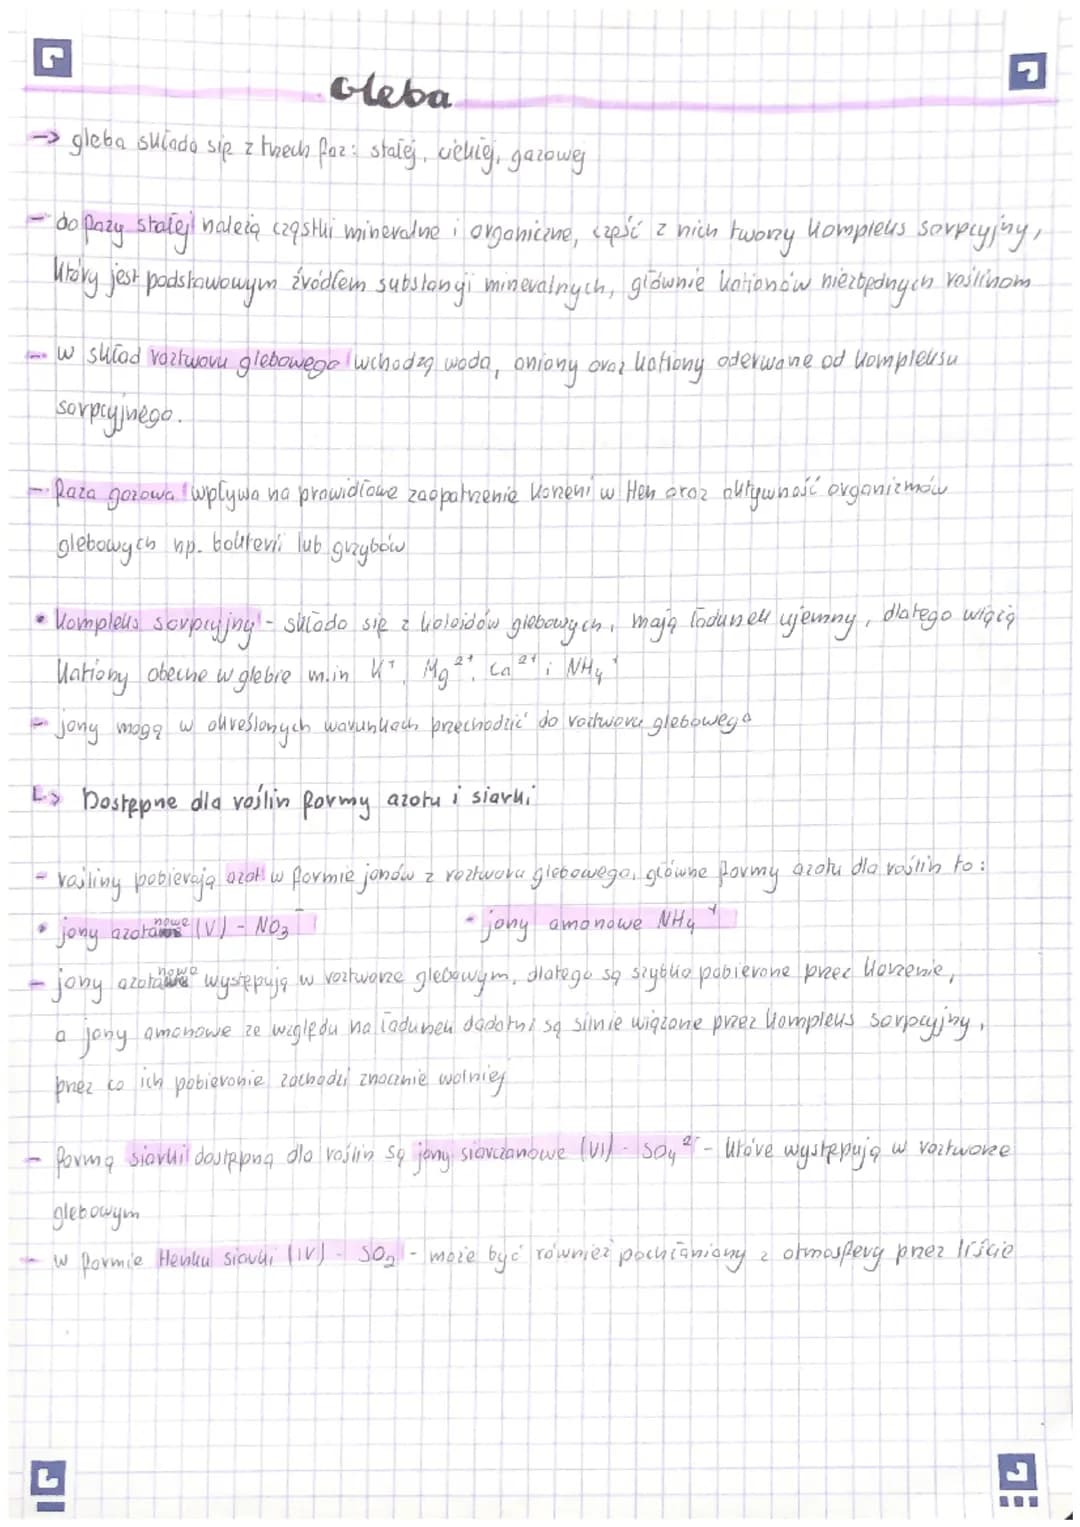 Gleba
→ gleba składa się z trzech faz: stałej, ciekłej, gazowej
- do fazy stałej należą cząstki mineralne i organiczne, część z nich tworzy kompleks sorpcyjny,
który jest podstawowym źródłem substancji mineralnych, głównie kationów niezbędnych roślinom
- w skład roztworu glebowego wchodzą woda, aniony oraz kationy oderwane od kompleksu
sorpcyjnego.
- faza gazowa wpływa na prawidłowe zaopatrzenie korzeni w tlen oraz aktywność organizmów
glebowych np. bakterii lub grzybów
• kompleks sorpcyjny - składa się z koloidów glebowych, mają ładunek ujemny, dlatego wiążą
kationy obecne w glebie m.in K⁺, Mg²⁺, Ca²⁺ i NH₄⁺
- jony mogą w określonych warunkach przechodzić do roztworu glebowego
↳ Dostępne dla roślin formy azotu i siarki
- rośliny pobierają azot w formie jonów z roztworu glebowego, główne formy azotu dla roślin to:
• jony azotanowe (V) - NO₃⁻ • jony amonowe NH₄⁺
- jony azotanowe występują w roztworze glebowym, dlatego są szybko pobierane przez korzenie,
a jony amonowe ze względu na ładunek dodatni są silnie wiązane przez kompleks sorpcyjny,
przez co ich pobieranie zachodzi znacznie wolniej
- formą siarki dostępną dla roślin są jony siarczanowe (VI) - SO₄²⁻ - które występują w roztworze
glebowym
- w formie tlenku siarki (IV) - SO₂ - może być również pochłaniany z atmosfery przez liście